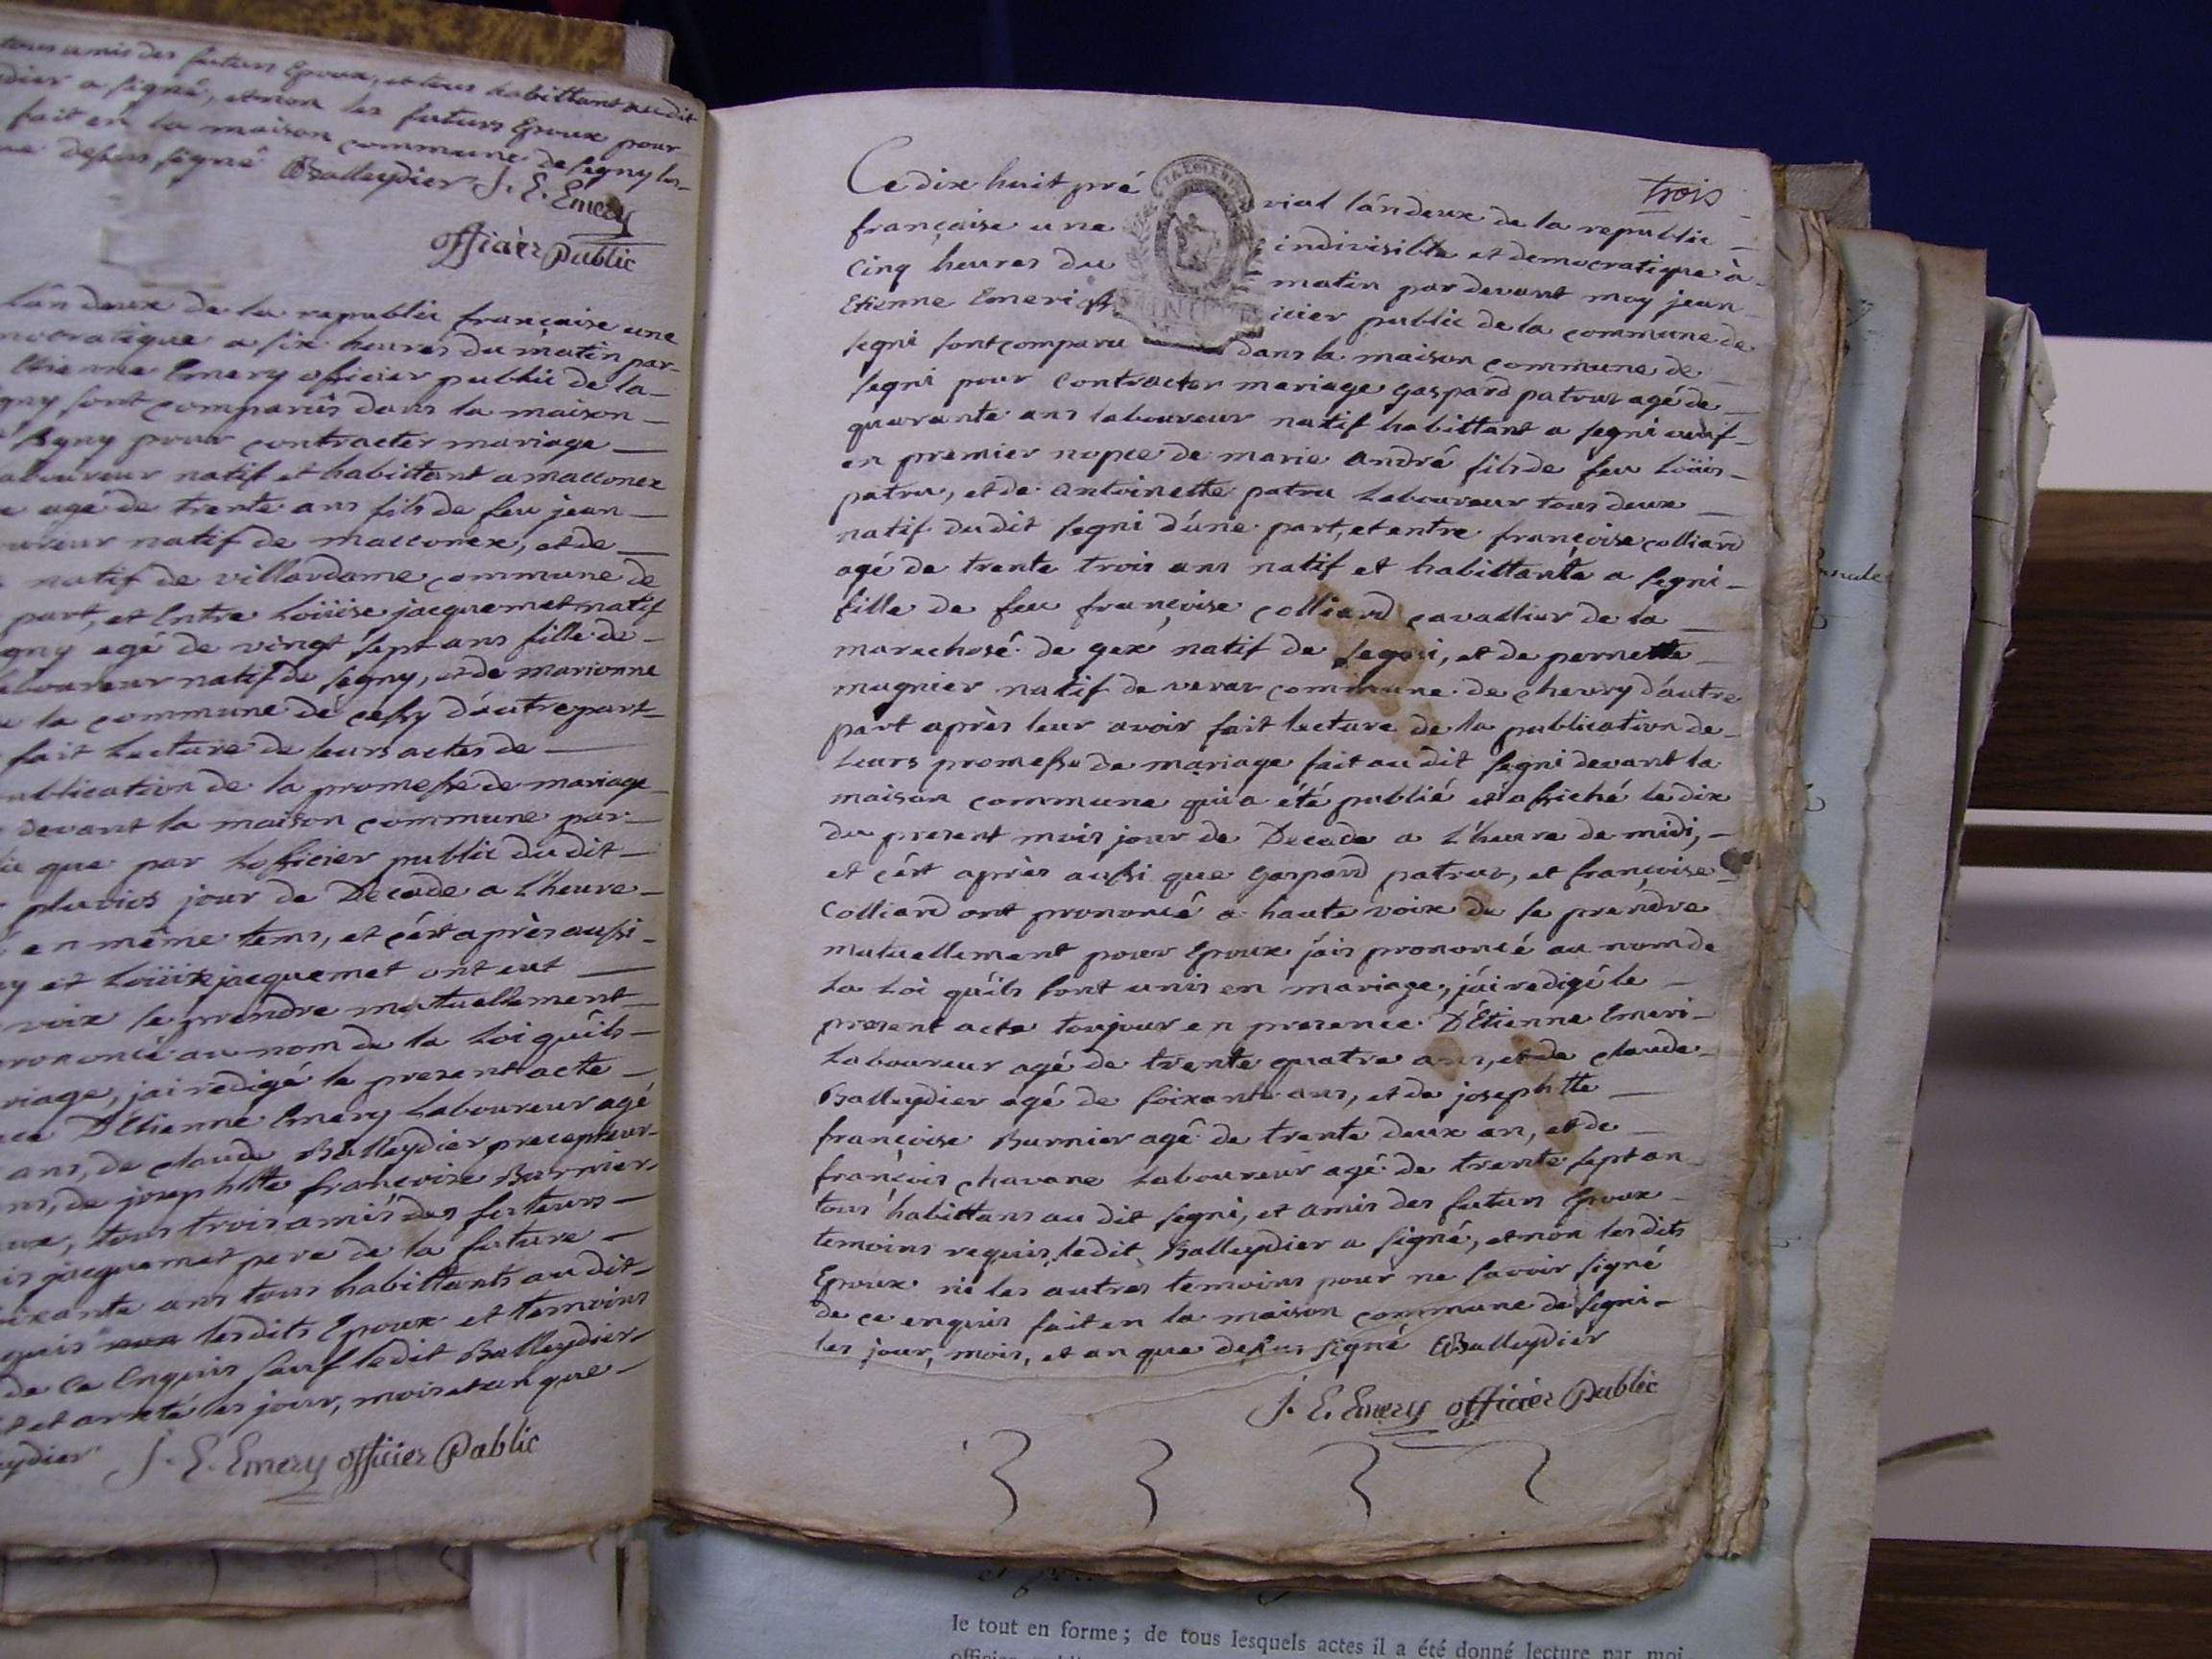 tous amis des futurs Epoux, et tous habittant audit
dier a signé, et non les futurs Epoux pour
fait en la maison commune de segny les
desus signé Balleydier J. E. Emery
officier Public
l'an deux de la republic française une
mocratique a six heures du matin par
Etienne Emery officier public de la
gny sont comparus dans la maison
segny pour contracter mariage
laboureur natif et habittant a macconex
agé de trente ans fils de feu jean
natif de macconex, et de
natif de villardame commune de
part, et Entre Loüise jacquemet natif
gny agé de vingt sept ans fille de
laboureur natif de segny, et de marionne
la commune de cessy d'autre part
fait lecture de leurs actes de
publication de la promesse de mariage
devant la maison commune par
que par l'officier public du dit
pluvios jour de Decade a l'heure
en même tems, et c'ést après aussi
et Loüise jacquemet ont eut
voix se prendre mutuellement
prononcé au nom de la Loi qu'ils
riage, j'ai redigé le present acte
D'Etienne Emery Laboureur agé
ans, de claude Balleydier precepteur
de josephtte françoise Burnier
tous trois amis des futurs
jacquemet pere de la future
soixante ans tous habittants audit
lesdits Epoux et temoins
de ce Enquis sauf ledit Balleydier
et arreté les jour, mois et an que
ydier J. E. Emery officier Public
trois
Ce dix huit pré rial l'an deux de la republic
française une indivisible et democratique à
cinq heures du matin par devant moy jean
Etienne Emeri off icier public de la commune de
segni sont comparu dans la maison commune de
segni pour Contracter mariage gaspard patruz agé de
quarante ans laboureur natif habittant a segni veuf
en premier nopce de marie andré fils de feu Loüis
patru, et de antoinette patru Laboureur tous deux
natif dudit segni d'une part, et entre françoise colliard
agé de trente trois ans natif et habittante a segni
fille de feu françoise colliard cavallier de la
marechosé de gex natif de segni, et de pernette
mugnier natif de veraz commune de chevry d'autre
part après leur avoir fait lecture de la publication de
leurs promesse de mariage fait audit segni devant la
maison commune qui a été publié et afiché le dix
du present mois jour de Decade a l'heure de midi,
et c'ést après aussi que gaspard patruz, et françoise
Colliard ont prononcé a haute voix de se prendre
mutuellement pour Epoux j'ais prononcé au nom de
La Loi qu'ils sont unis en mariage, j'ai redigé le
present acte toujour en presence D'Etienne Emeri
Laboureur agé de trente quatre ans, et de claude
Balleydier agé de soixante ans, et de josephtte
françoise Burnier agé de trente deux an, et de
françois chavane Laboureur agé de trente sept an
tous habittans au dit segni, et amis des futurs Epoux
temoins requis, ledit Balleydier a signé, et non lesdits
Epoux ni les autres temoins pour ne savoir signé
de ce enquis fait en la maison commune de segni
les jour, mois, et an que desus signé Balleydier
J. E. Emery officier Public
le tout en forme ; de tous lesquels actes il a été donné lecture par moi